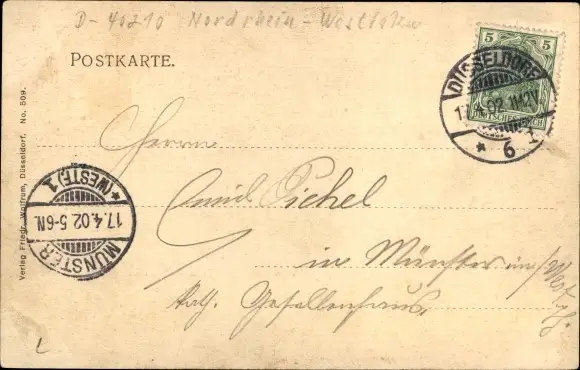 D-40210 Nordrhein-Westfalen
POSTKARTE.
5 5
DEUTSCHES REICH
DÜSSELDORF 1
4.02
* 6
Herrn
Emil Eichel
in Münster
Kath. Gesellenhaus.
MÜNSTER
17.4.02 5-6N.
*(WESTF.) 1
Verlag Friedr. Wolfrum, Düsseldorf. No. 509.